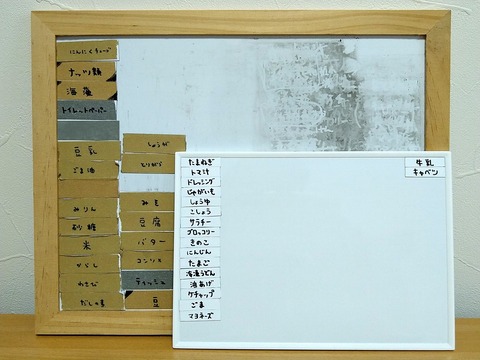 にんにくチューブ
ナッツ類
海藻
トイレットペーパー
豆乳
ごま油
みりん
砂糖
米
からし
わさび
だしの素
しょうが
とりがら
みそ
豆腐
バター
コンソメ
ティッシュ
豆
たまねぎ
トマト
ドレッシング
じゃがいも
しょうゆ
こしょう
サラダ
ブロッコリー
きのこ
にんじん
たまご
冷凍うどん
油あげ
ケチャップ
ごま
マヨネーズ
牛乳
キャベツ